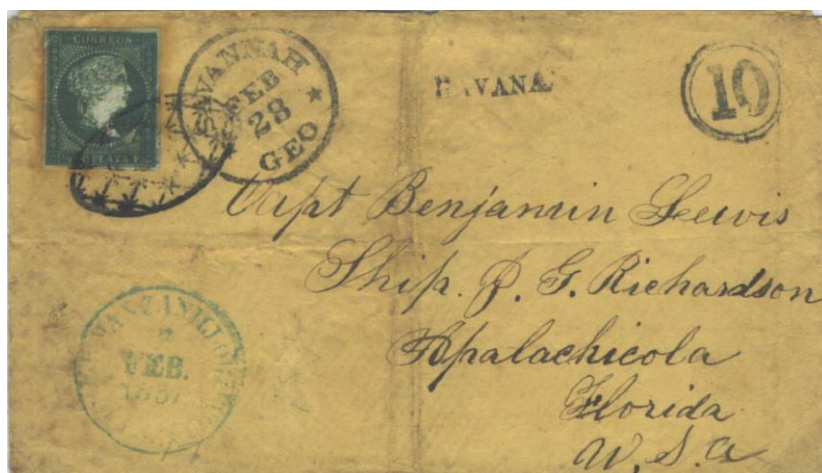 CORREOS
SAVANNAH
FEB
28
GEO
HAVANA
10
Capt Benjamin Lewis
Ship. J. G. Richardson
Apalachicola
Florida
U.S.a
FEB.
1857